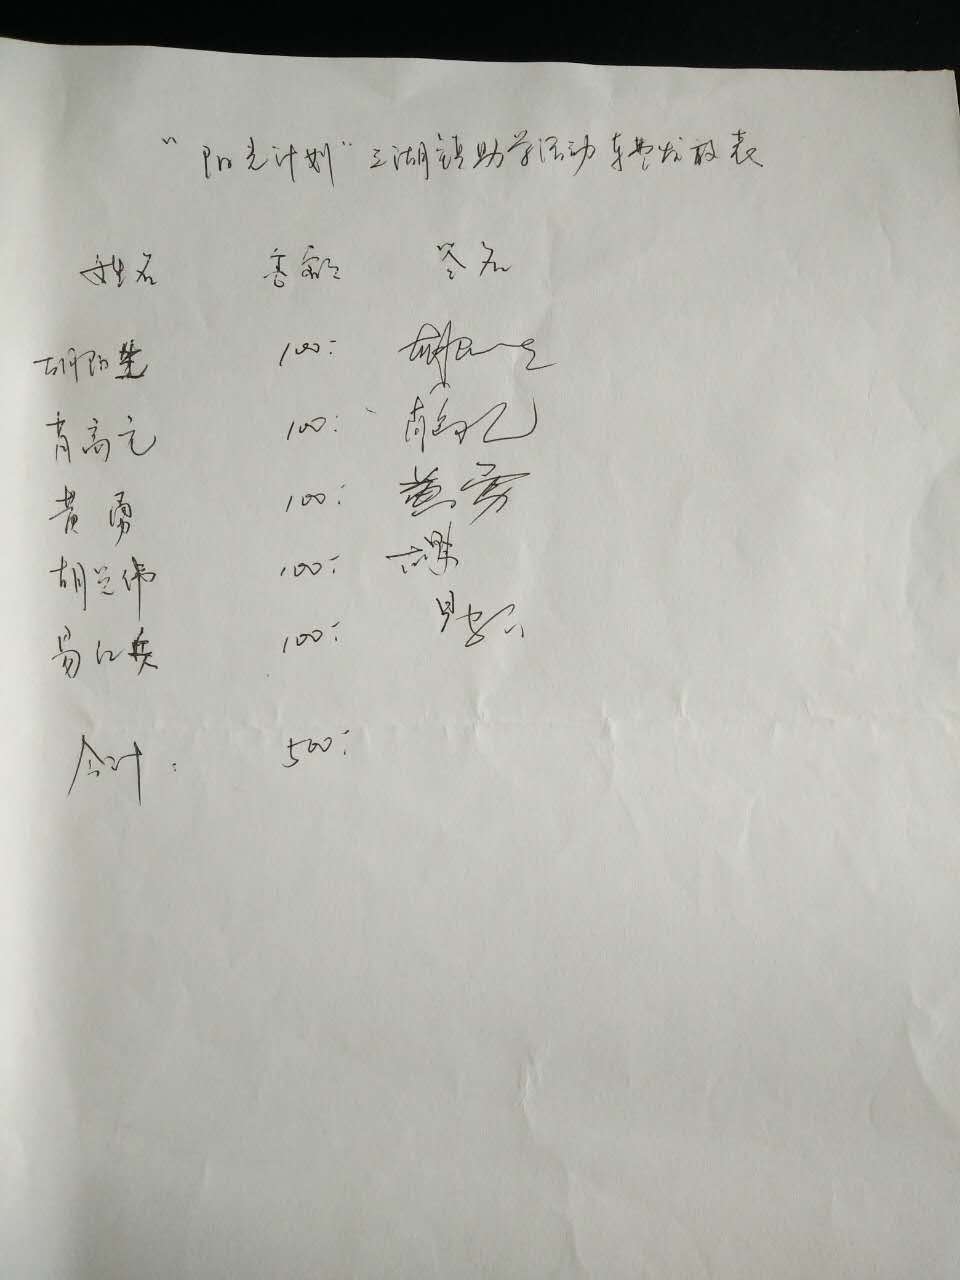 “阳光计划”三湖镇助学活动车费发放表
姓名 金额 签名
胡阳 100:
肖高元 100:
黄勇 100: 黄勇
胡兰伟 100:
易江兵 100:
合计: 500: